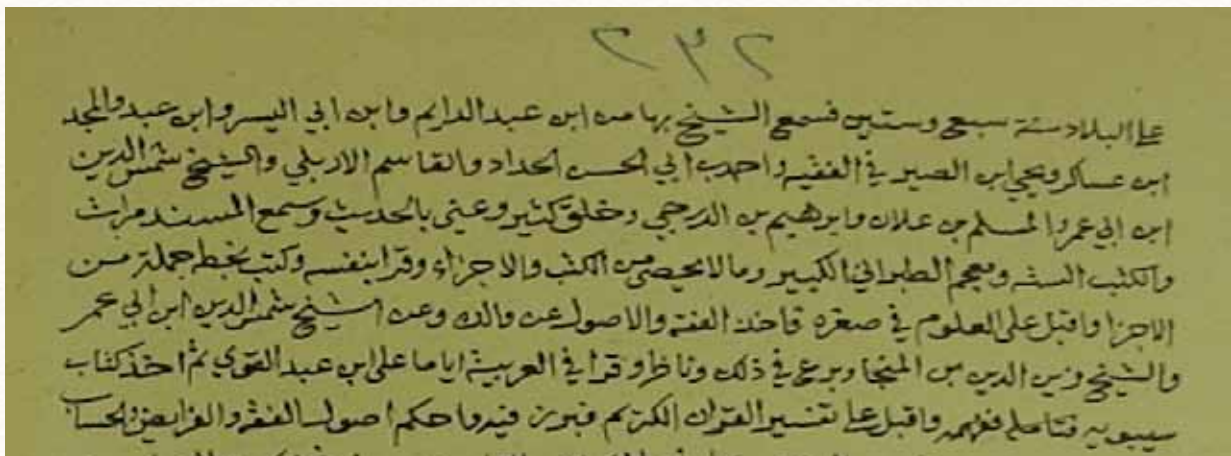 ٢٣٢
على البلاد سنة سبع وستين فسمع الشيخ بها من ابن عبد الدايم وابن ابي اليسر وابن عبد والمجد
ابن عساكر ويحيى ابن الصيرفي الفقيه واحمد بن ابي الحسن الحداد والقاسم الاربلي والشيخ شمس الدين
ابن ابي عمر والمسلم بن علان وابرهيم بن الدرجي وخلق كثير وعني بالحديث وسمع المسند مرات
والكتب الستة ومعجم الطبراني الكبير وما لا يحصى من الكتب والاجزاء وقرا بنفسه وكتب بخطه جملة من
الاجزا واقبل على العلوم في صغره فاخذ الفقه والاصول عن والده وعن الشيخ شمس الدين ابن ابي عمر
والشيخ زين الدين بن المنجا وبرع في ذلك وناظر وقرا في العربية اياما على ابن عبد القوي ثم اخذ كتاب
سيبويه فتامله ففهمه واقبل على تفسير القران الكريم فبرز فيه واحكم اصول الفقه والفرايض والحساب